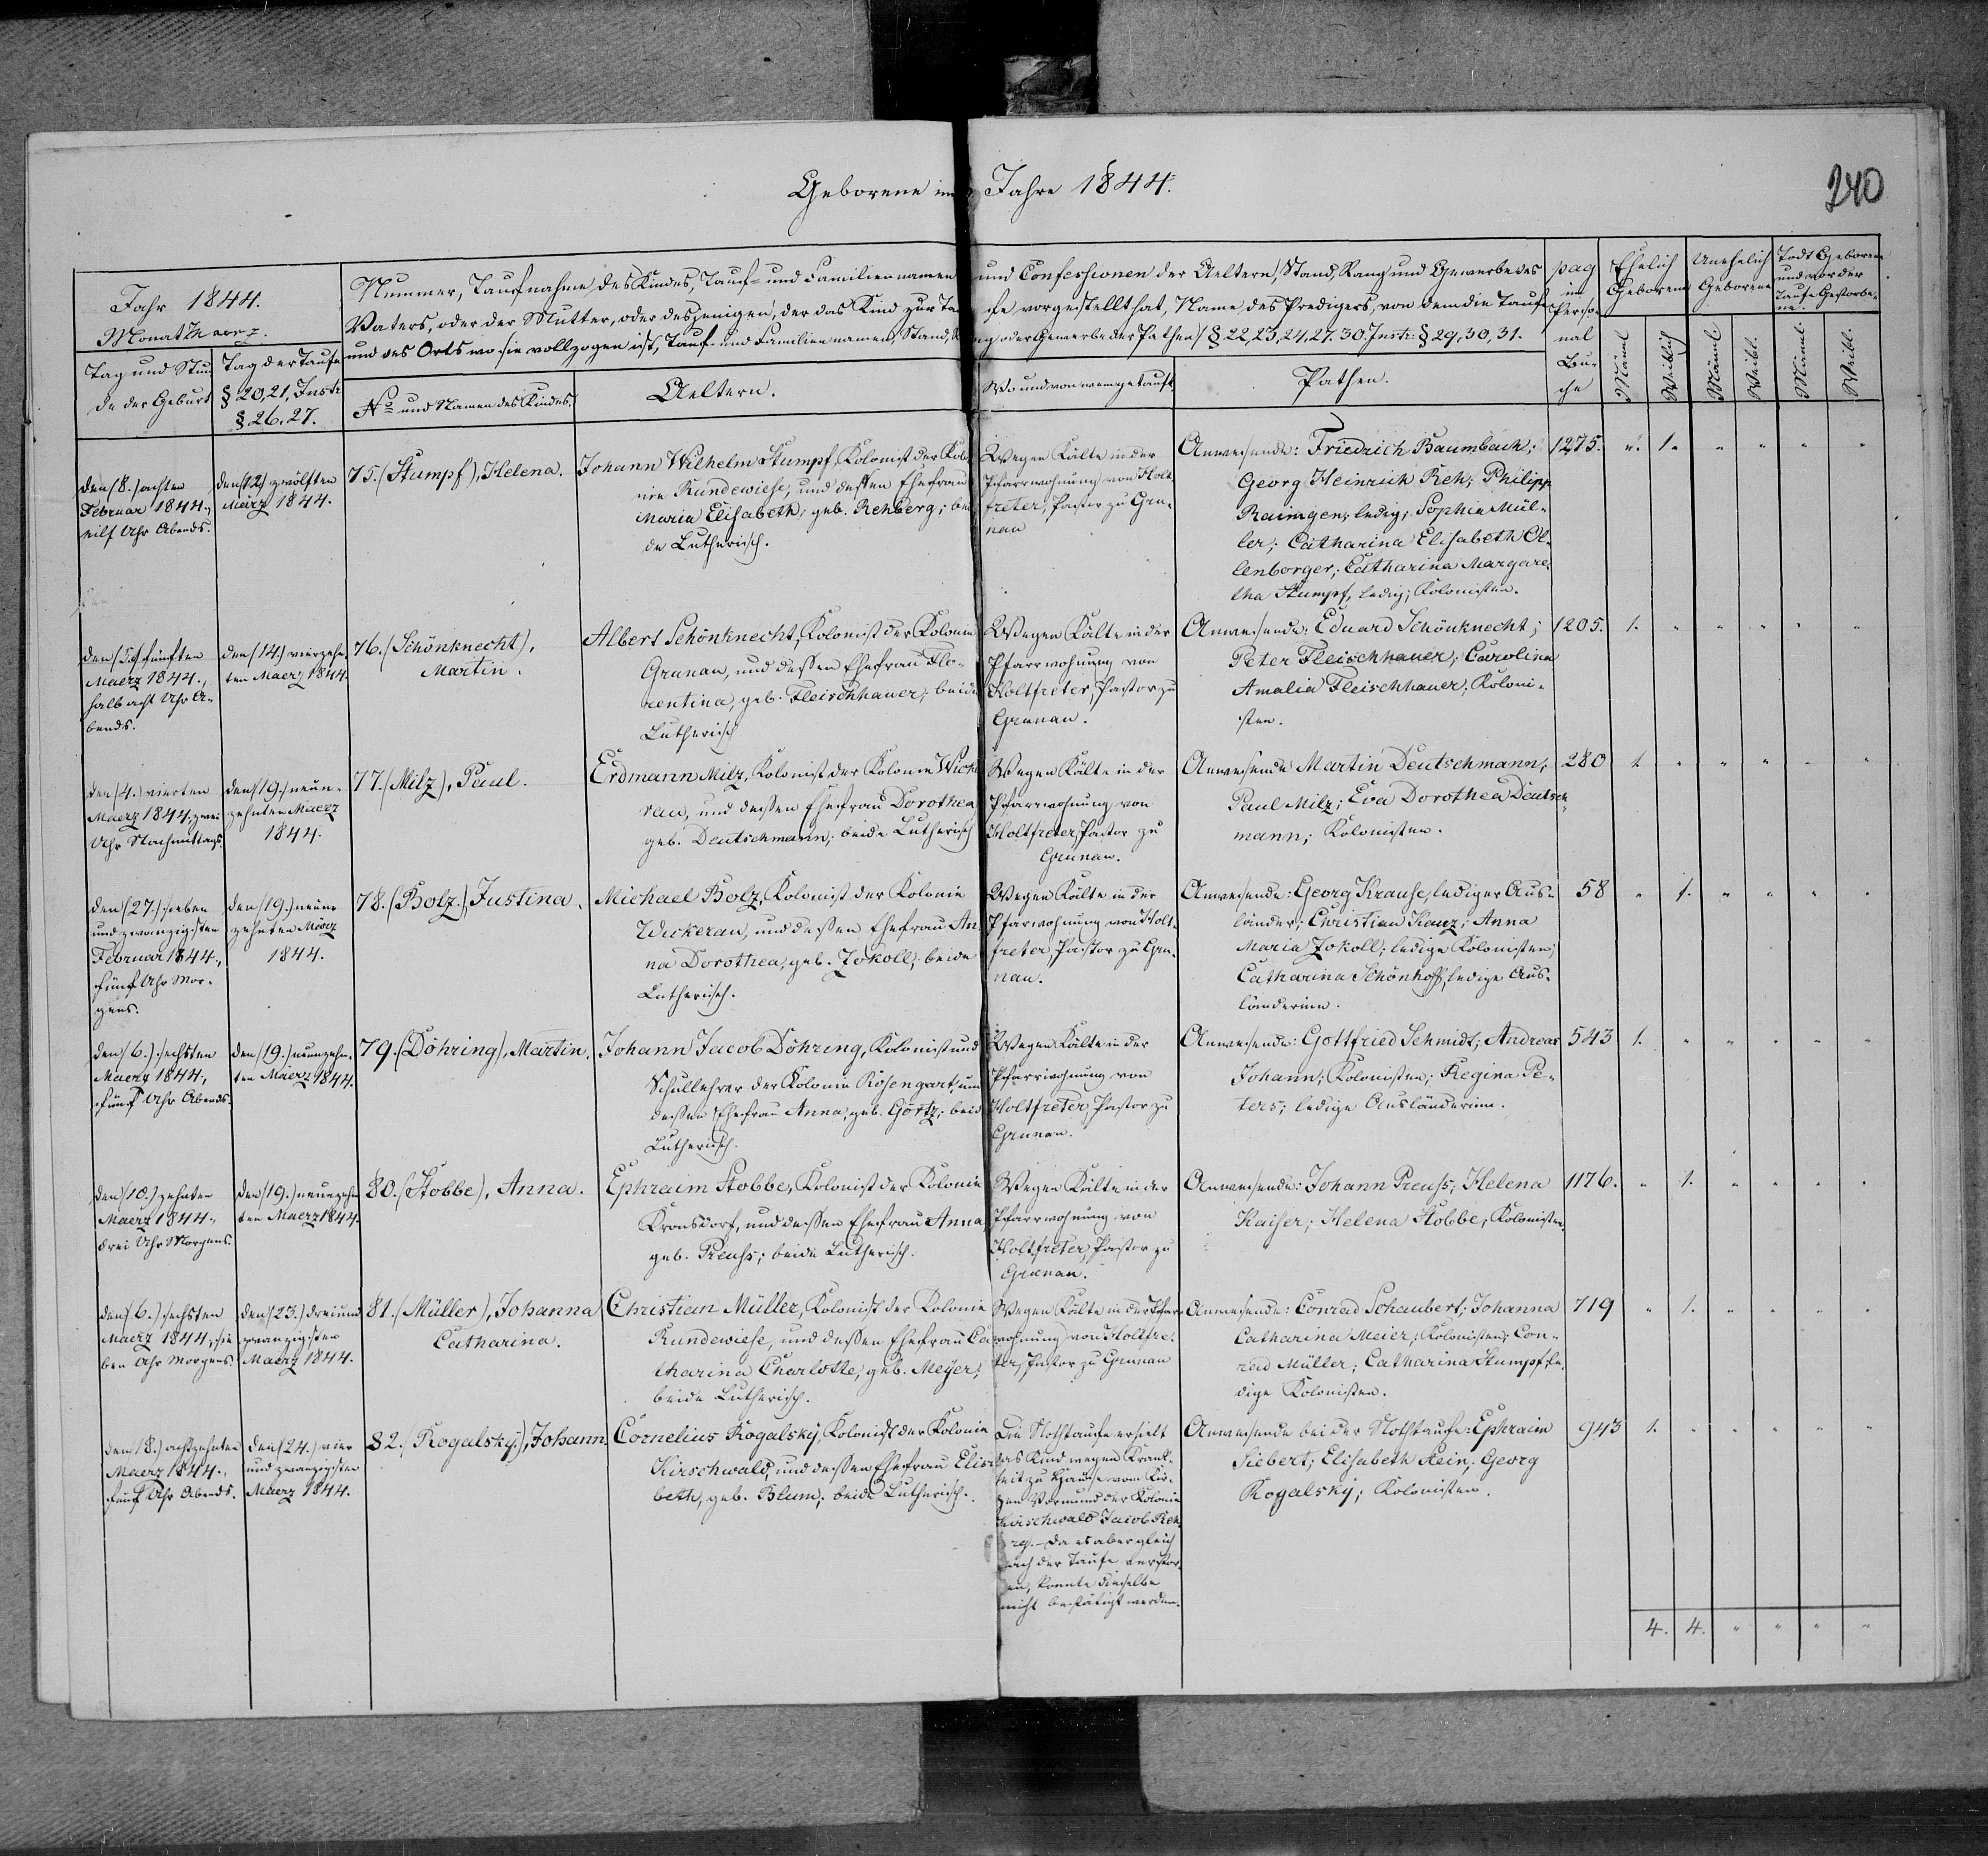 Geborene im Jahre 1844.
240
Jahr 1844.
Monat Maerz.
Nummer, Taufnahme des Kindes, Tauf- und Familiennamen und Confessionen der Aeltern, Stand, Rang und Gewerbe des
Vaters, oder der Mutter, oder desjenigen, der das Kind zur Taufe vorgestellt hat, Name des Predigers, von dem die Taufe
und des Orts wo sie vollzogen ist, Tauf- und Familiennamen, Stand, Rang oder Gewerbe der Pathen § 22, 23, 24, 27. 30. Instr: § 29, 30, 31.
pag
im
Perso-
nal
Bu-
che
Ehelich
Geborene
Unehelich
Geborene
Todt Geborene
und vor der
Taufe Gestorbe-
ne.
Tag und Stun
de der Geburt
Tag der Taufe
§. 20, 21, Instr
§ 26. 27.
No und Namen des Kindes.
Aeltern.
Wo und von wem getauft
Pathen.
Männl
Weiblich
Männl
Weibl.
Männl.
Weibl.
den (8.) achten
Februar 1844.,
eilf Uhr Abends.
den (12) zwölften
März 1844.
75. (Stumpf), Helena.
Johann Wilhelm Stumpf, Kolonist der Kolo
nie Rundewiese, und dessen Ehefrau
Maria Elisabeth, geb. Rehberg; bei
de Lutherisch.
Wegen Kälte in der
Pfarrwohnung von Holt
freter, Pastor zu Gru-
nau
Anwesende: Friedrich Baumbach;
Georg Heinrich Reh; Philipp
Raimgen, ledig; Sophia Mül-
ler; Catharina Elisabeth Ol-
lenborger; Catharina Margare-
tha Stumpf, ledig; Kolonisten.
1275. " 1. " " " "
den (5.) fünften
Maerz 1844.,
halb acht Uhr A-
bends.
den (14.) vierzehn-
ten Maerz 1844.
76. (Schönknecht),
Martin.
Albert Schönknecht, Kolonist der Kolonie
Grunau, und dessen Ehefrau Flo-
rentina, geb. Fleischhauer; beide
Lutherisch
Wegen Kälte in der
Pfarrwohnung von
Holtfreter, Pastor zu
Grunau.
Anwesende: Eduard Schönknecht;
Peter Fleischhauer; Carolina
Amalia Fleischhauer; Koloni-
sten.
1205. 1. " " " " "
den (4.) vierten
Maerz 1844., zwei
Uhr Nachmittags.
den (19.) neun-
zehnten Maerz
1844.
77. (Milz), Paul.
Erdmann Milz, Kolonist der Kolonie Wicke
rau, und dessen Ehefrau Dorothea
geb. Deutschmann; beide Lutherisch
Wegen Kälte in der
Pfarrwohnung von
Holtfreter, Pastor zu
Grunau.
Anwesende Martin Deutschmann,
Paul Milz; Eva Dorothea Deutsch-
mann; Kolonisten.
280 1. " " " " "
den (27.) sieben
und zwanzigsten
Februar 1844.,
fünf Uhr Mor-
gens.
den (19.) neun-
zehnten März
1844.
78. (Bolz.), Justina.
Michael Bolz, Kolonist der Kolonie
Wickerau, und dessen Ehefrau An
na Dorothea, geb. Zokoll; beide
Lutherisch.
Wegen Kälte in der
Pfarrwohnung von Holt-
freter, Pastor zu Gru-
nau.
Anwesende: Georg Krause, lediger Aus-
länder; Christian Kauz; Anna
Maria Zokoll; ledige Kolonisten;
Catharina Schönhoff, ledige Aus-
länderinn.
58 " 1. " " " "
den (6.) sechsten
Maerz 1844.,
fünf Uhr Abends.
den (19.) neunzehn-
ten Maerz 1844.
79. (Döhring), Martin.
Johann Jacob Döhring, Kolonist und
Schullehrer der Kolonie Rosengart, und
dessen Ehefrau Anna, geb. Görtz; beide
Lutherisch.
Wegen Kälte in der
Pfarrwohnung von
Holtfreter, Pastor zu
Grunau.
Anwesende: Gottfried Schmidt; Andreas
Johann; Kolonisten; Regina Pe-
ters; ledige Ausländerinn.
543 1. " " " " "
den (10.) zehnten
Maerz 1844.,
drei Uhr Morgens.
den (19.) neunzehn
ten Maerz 1844.
80. (Stobbe), Anna.
Ephraim Stobbe, Kolonist der Kolonie
Kronsdorf, und dessen Ehefrau Anna,
geb. Preuss; beide Lutherisch.
Wegen Kälte in der
Pfarrwohnung von
Holtfreter, Pastor zu
Grunau.
Anwesende: Johann Preuss; Helena
Kaiser; Helena Stobbe; Kolonisten
1176. " 1. " " " "
den (6.) sechsten
Maerz 1844., sie
ben Uhr Morgens.
den (23.) dreiund
zwanzigsten
Maerz 1844.
81. (Müller), Johanna
Catharina.
Christian Müller, Kolonist der Kolonie
Rundewiese, und dessen Ehefrau Ca
tharina Charlotte, geb. Meyer;
beide Lutherisch.
Wegen Kälte in der Pfarr-
wohnung von Holtfre-
ter, Pastor zu Grunau
Anwesende: Conrad Schaubert; Johanna
Catharina Meier; Kolonisten; Con-
rad Müller; Catharina Stumpf; le-
dige Kolonisten.
719 " 1. " " " "
den (18.) achtzehnten
Maerz 1844.,
fünf Uhr Abends.
den (24.) vier
und zwanzigsten
Maerz 1844.
82. (Rogalsky.), Johann.
Cornelius Rogalsky, Kolonist der Kolonie
Kirschwald, und dessen Ehefrau Elisa
beth, geb. Blum; beide Lutherisch.
Die Nothtaufe erhielt
das Kind wegen Krank-
heit zu Hause vom Kir-
chen Vormund der Kolonie
Kirschwald Jacob Reh
rg. – Da es aber gleich
nach der Taufe verstor-
ben, konnte dieselbe
nicht bestätigt werden.
Anwesende bei der Nothtaufe: Ephraim
Siebert; Elisabeth Rein; Georg
Rogalsky; Kolonisten.
943 1. " " " " "
4. 4. " " " "